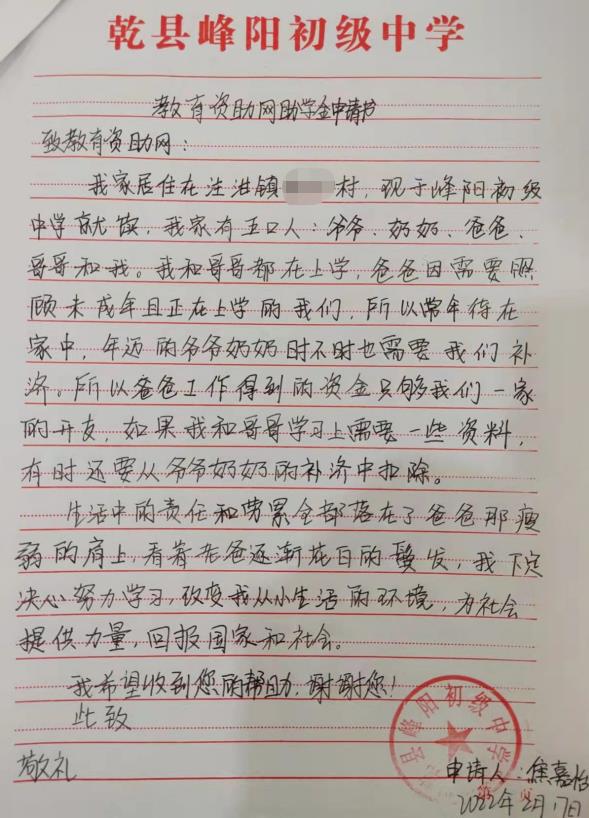 乾县峰阳初级中学
教育资助网助学金申请书
致教育资助网：
我家居住在注泔镇 村，现于峰阳初级
中学就读，我家有五口人：爷爷、奶奶、爸爸、
哥哥和我。我和哥哥都在上学，爸爸因需要照
顾未成年且正在上学的我们，所以常年待在
家中，年迈的爷爷奶奶时不时也需要我们补
济。所以爸爸工作得到的资金只够我们一家
的开支，如果我和哥哥学习上需要一些资料，
有时还要从爷爷奶奶的补济中扣除。
生活中的责任和劳累全部落在了爸爸那瘦
弱的肩上，看着老爸逐渐花白的鬓发，我下定
决心努力学习，改变我从小生活的环境，为社会
提供力量，回报国家和社会。
我希望收到您的帮助，谢谢您！
此致
敬礼
县峰阳初级中学
申请人：焦嘉怡
第 页
2022年2月17日